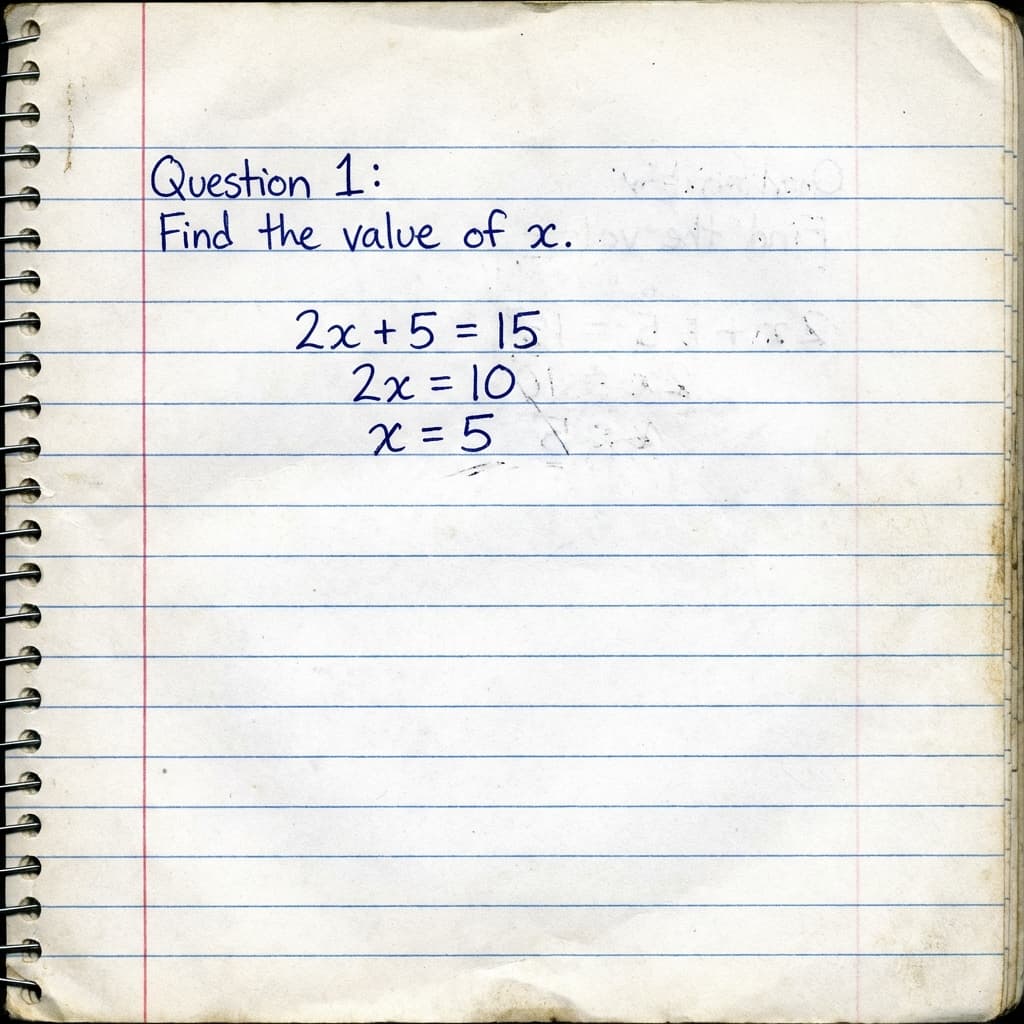 Question 1:
Find the value of x.
2x + 5 = 15
2x = 10
x = 5